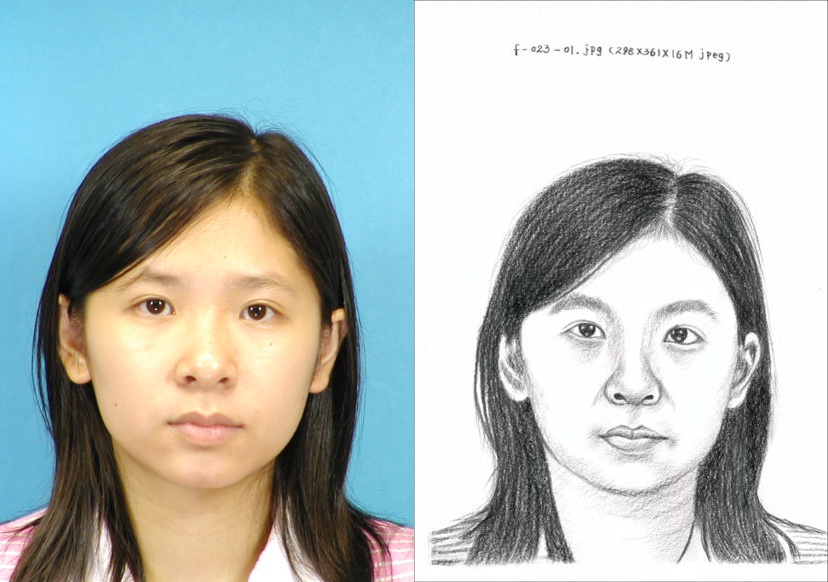 f-023-01.jpg (298X361X16M jpeg)